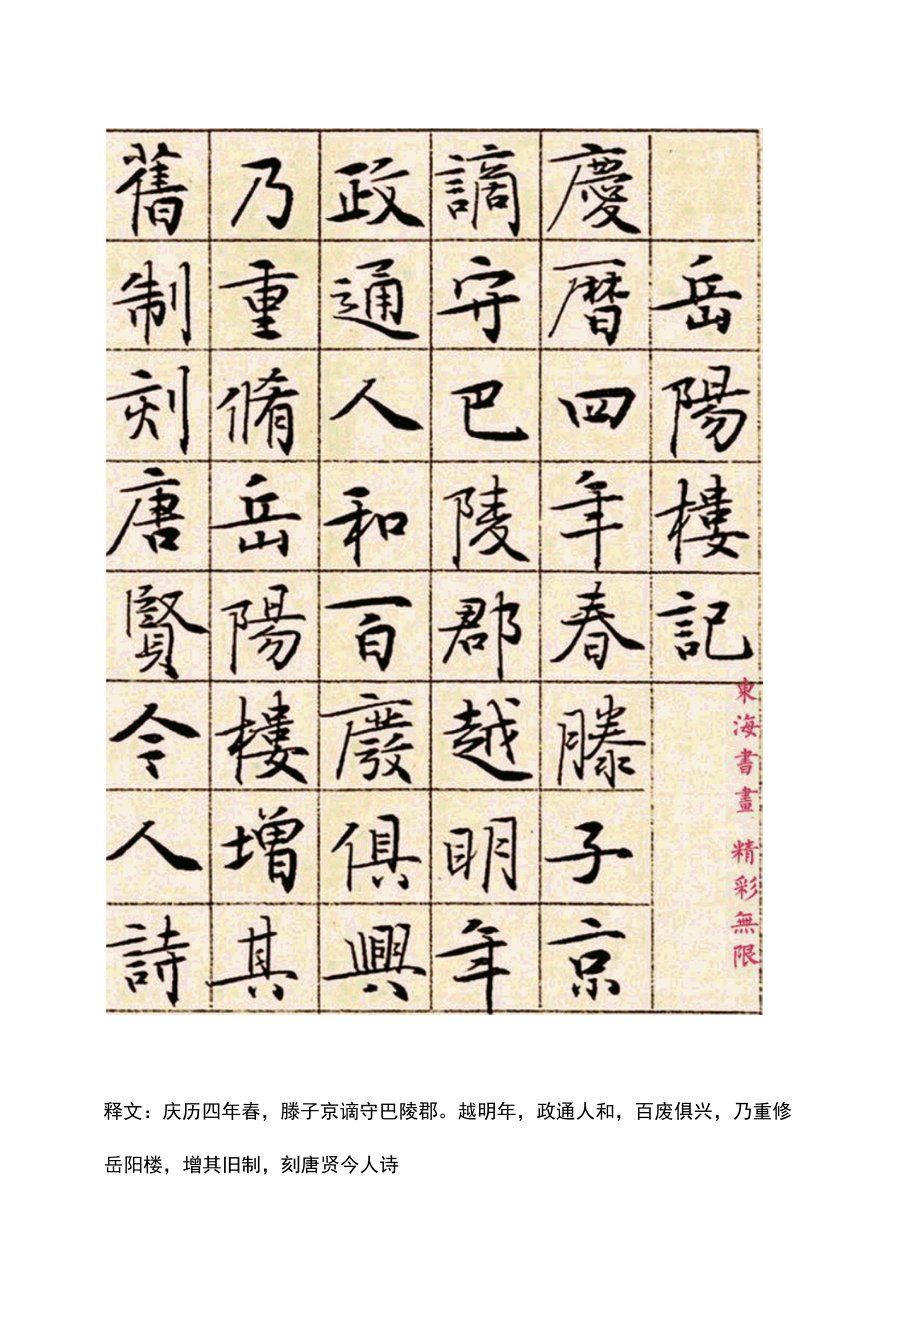 岳陽樓記
慶曆四年春滕子京
謫守巴陵郡越明年
政通人和百廢俱興
乃重脩岳陽樓增其
舊制刻唐賢今人詩
東海書畫 精彩無限
释文：庆历四年春，滕子京谪守巴陵郡。越明年，政通人和，百废俱兴，乃重修
岳阳楼，增其旧制，刻唐贤今人诗